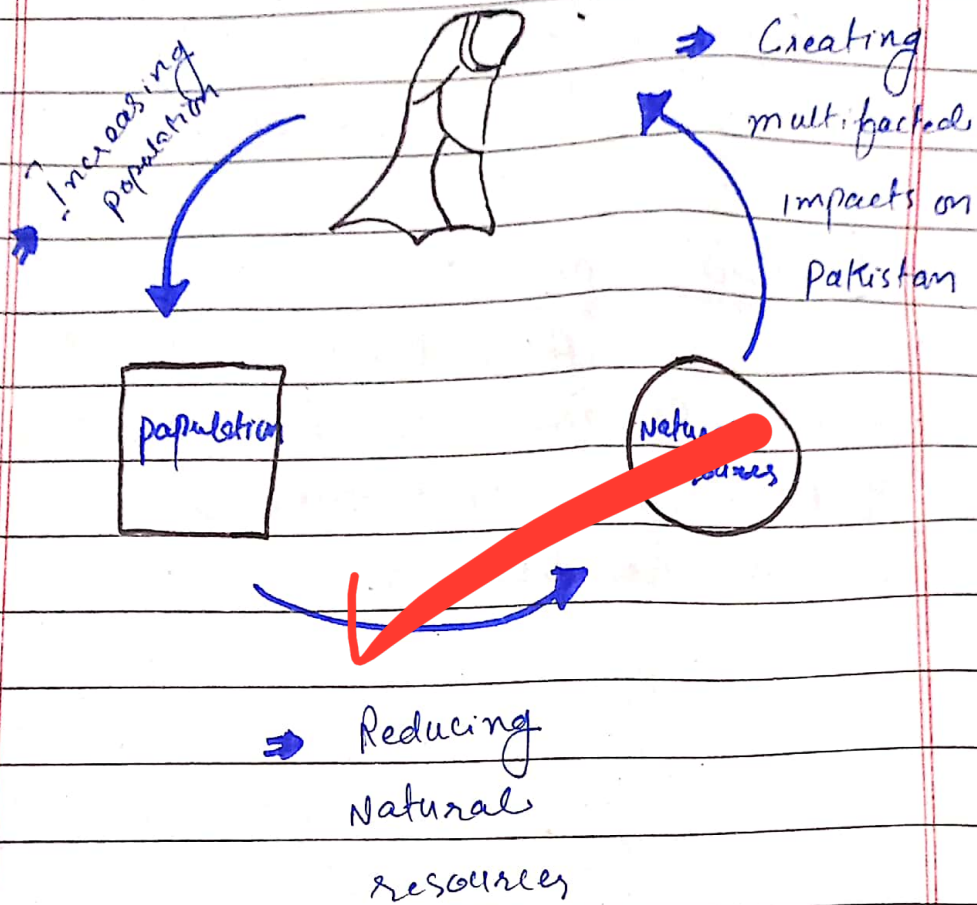 Increasing
population
Creating
multifacted
impacts on
Pakistan
papulation
Reducing
Natural
resources